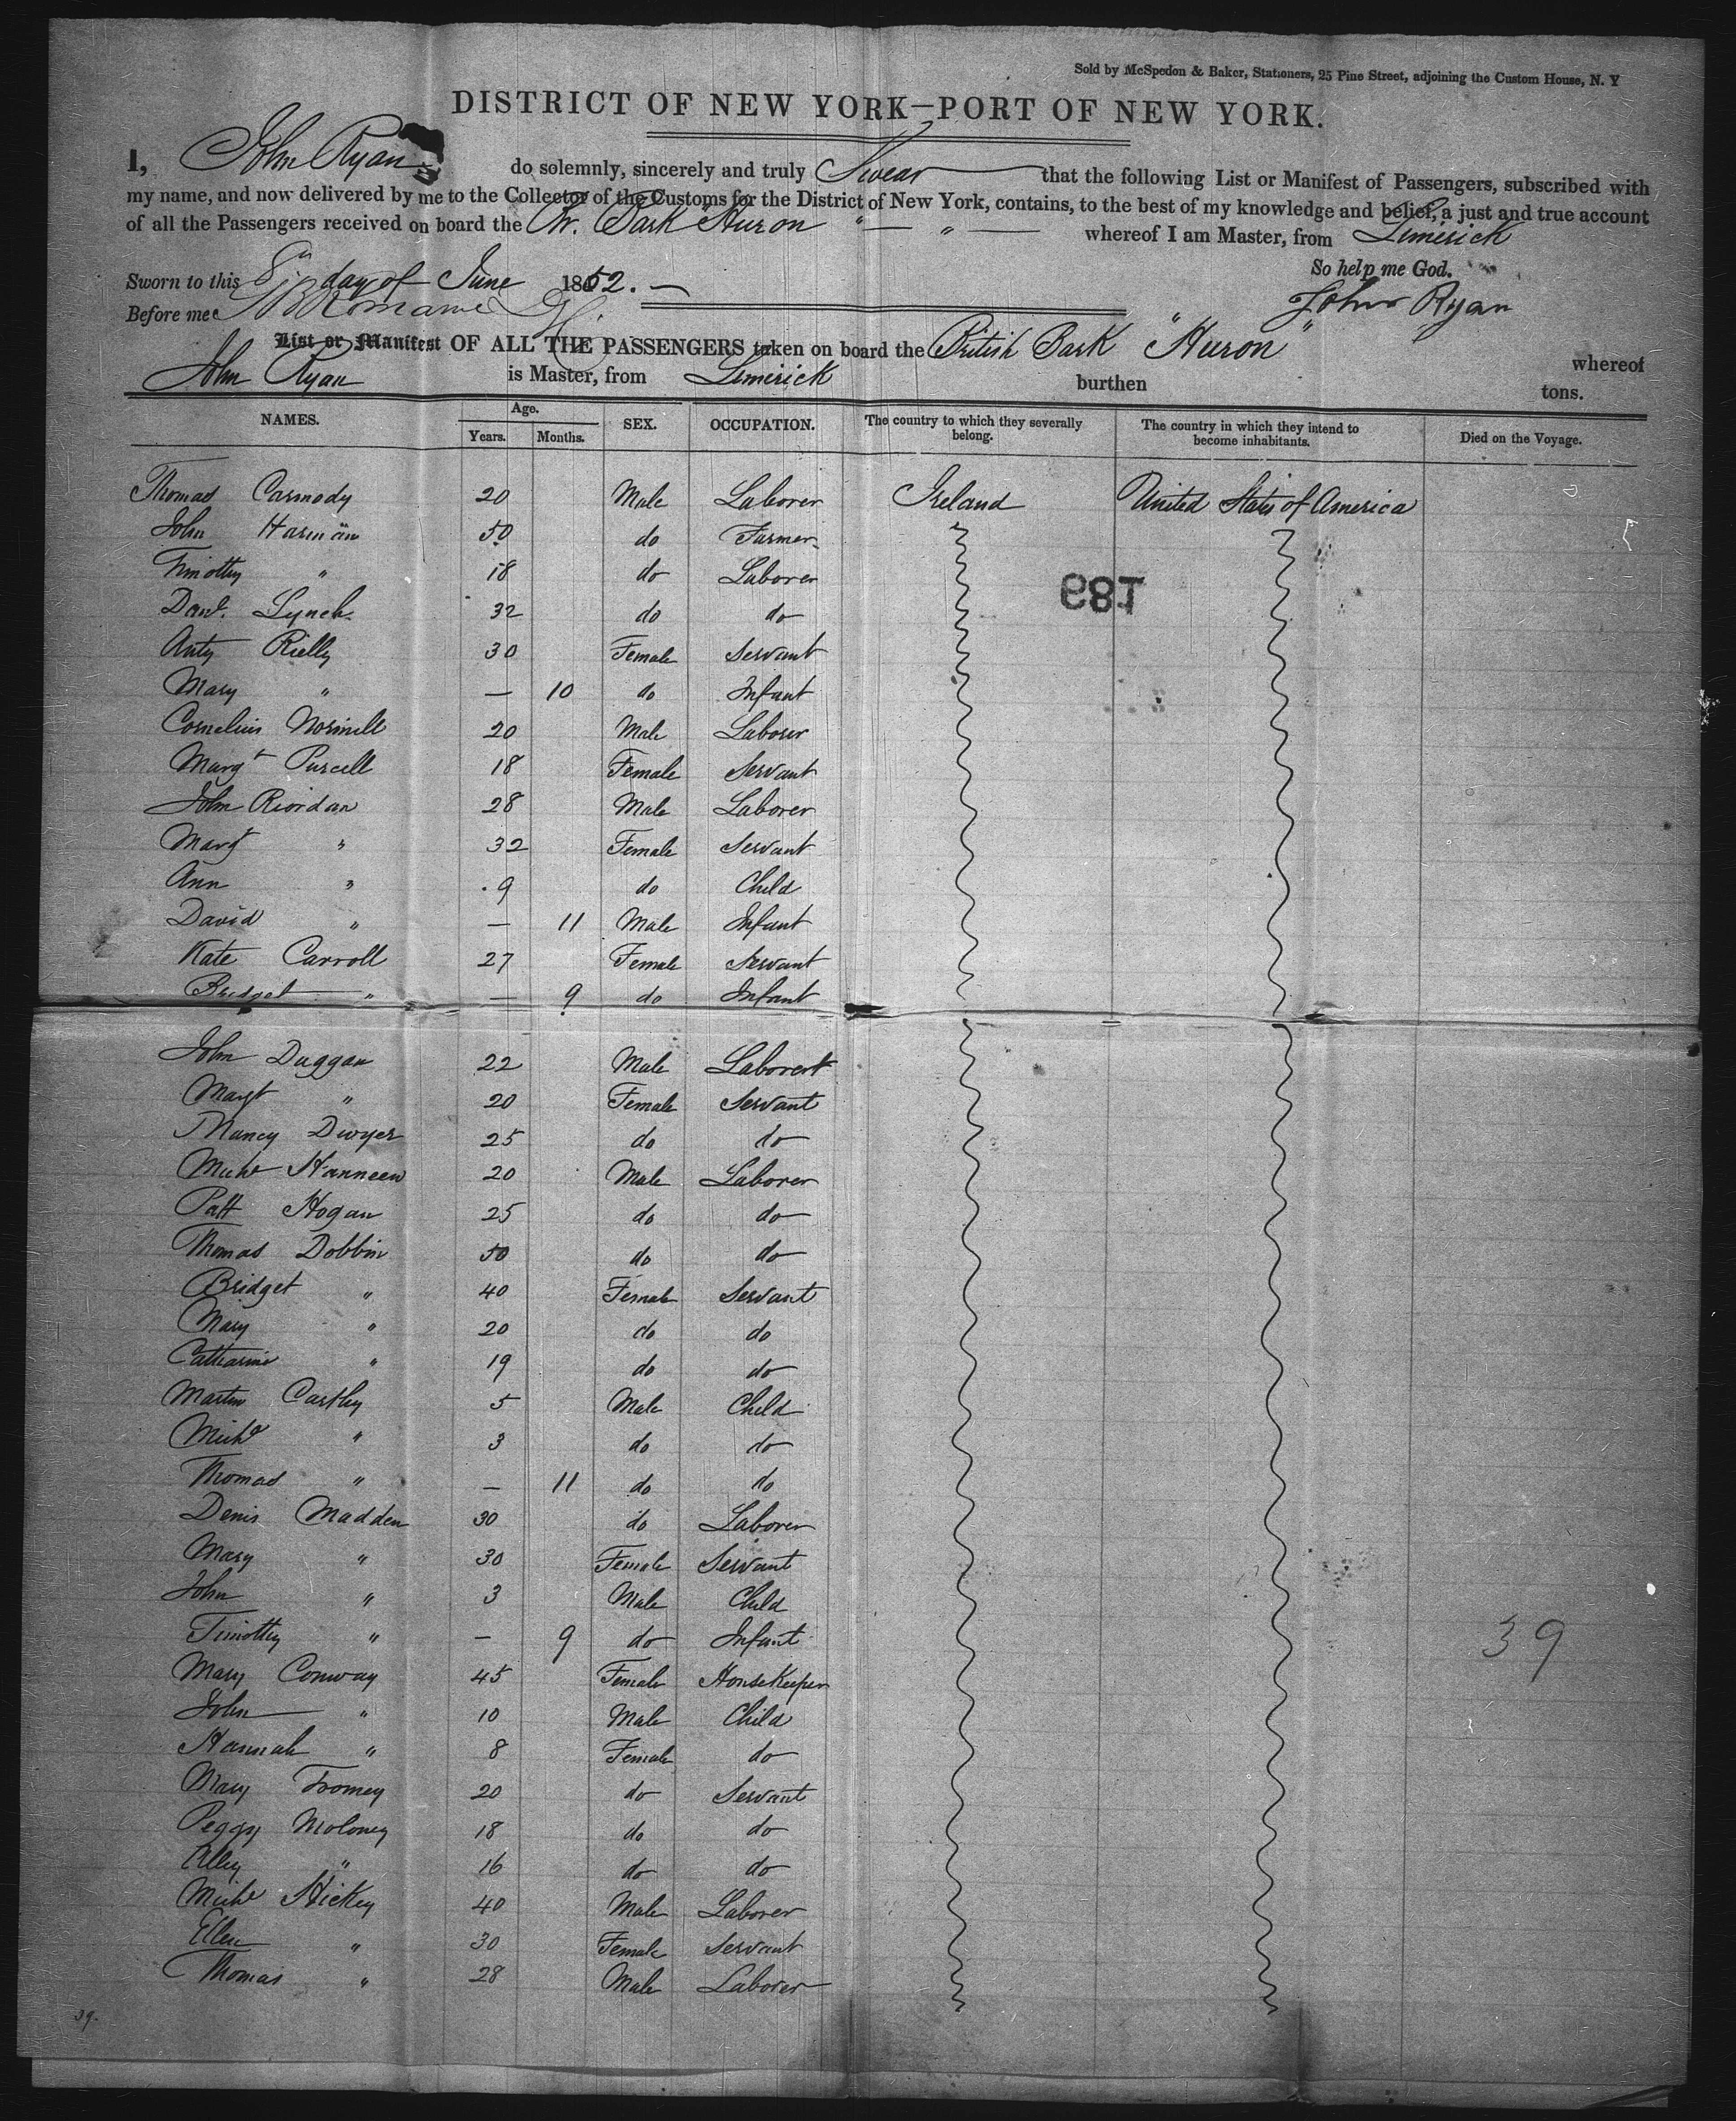 Sold by McSpedon & Baker, Stationers, 25 Pine Street, adjoining the Custom House, N. Y
DISTRICT OF NEW YORK—PORT OF NEW YORK.
I, John Ryan do solemnly, sincerely and truly Swear that the following List or Manifest of Passengers, subscribed with
my name, and now delivered by me to the Collector of the Customs for the District of New York, contains, to the best of my knowledge and belief, a just and true account
of all the Passengers received on board the Br. Bark "Huron" whereof I am Master, from Limerick
So help me God.
Sworn to this 8th day of June 1852. John Ryan
Before me
List or Manifest OF ALL THE PASSENGERS taken on board the British Bark "Huron" whereof
John Ryan is Master, from Limerick burthen tons.
NAMES. Age. Years. Months. SEX. OCCUPATION. The country to which they severally belong. The country in which they intend to become inhabitants. Died on the Voyage.
Thomas Carmody 20 Male Laborer Ireland United States of America
John Harman 50 do Farmer
Timothy " 18 do Laborer
189
Danl. Lynch 32 do do
Anty Rielly 30 Female Servant
Mary " — 10 do Infant
Cornelius 20 Male Laborer
Margt Purcell 18 Female Servant
John Riordan 28 Male Laborer
Margt " 32 Female Servant
Ann " 9 do Child
David " — 11 Male Infant
Kate Carroll 27 Female Servant
Bridget " — 9 do Infant
John Duggan 22 Male Laborer
Margt " 20 Female Servant
Nancy Dwyer 25 do do
Michl Hanneen 20 Male Laborer
Patt Hogan 25 do do
Thomas Dobbin 50 do do
Bridget " 40 Female Servant
Mary " 20 do do
Catharine " 19 do do
Martin Carthy 5 Male Child
Michl " 3 do do
Thomas " — 11 do do
Denis Madden 30 do Laborer
Mary " 30 Female Servant
John " 3 Male Child
Timothy " — 9 do Infant
39
Mary Conway 45 Female HouseKeeper
John " 10 Male Child
Hannah " 8 Female do
Mary Twomey 20 do Servant
Peggy Moloney 18 do do
Elley " 16 do do
Michl Hickey 40 Male Laborer
Ellen " 30 Female Servant
Thomas " 28 Male Laborer
39.